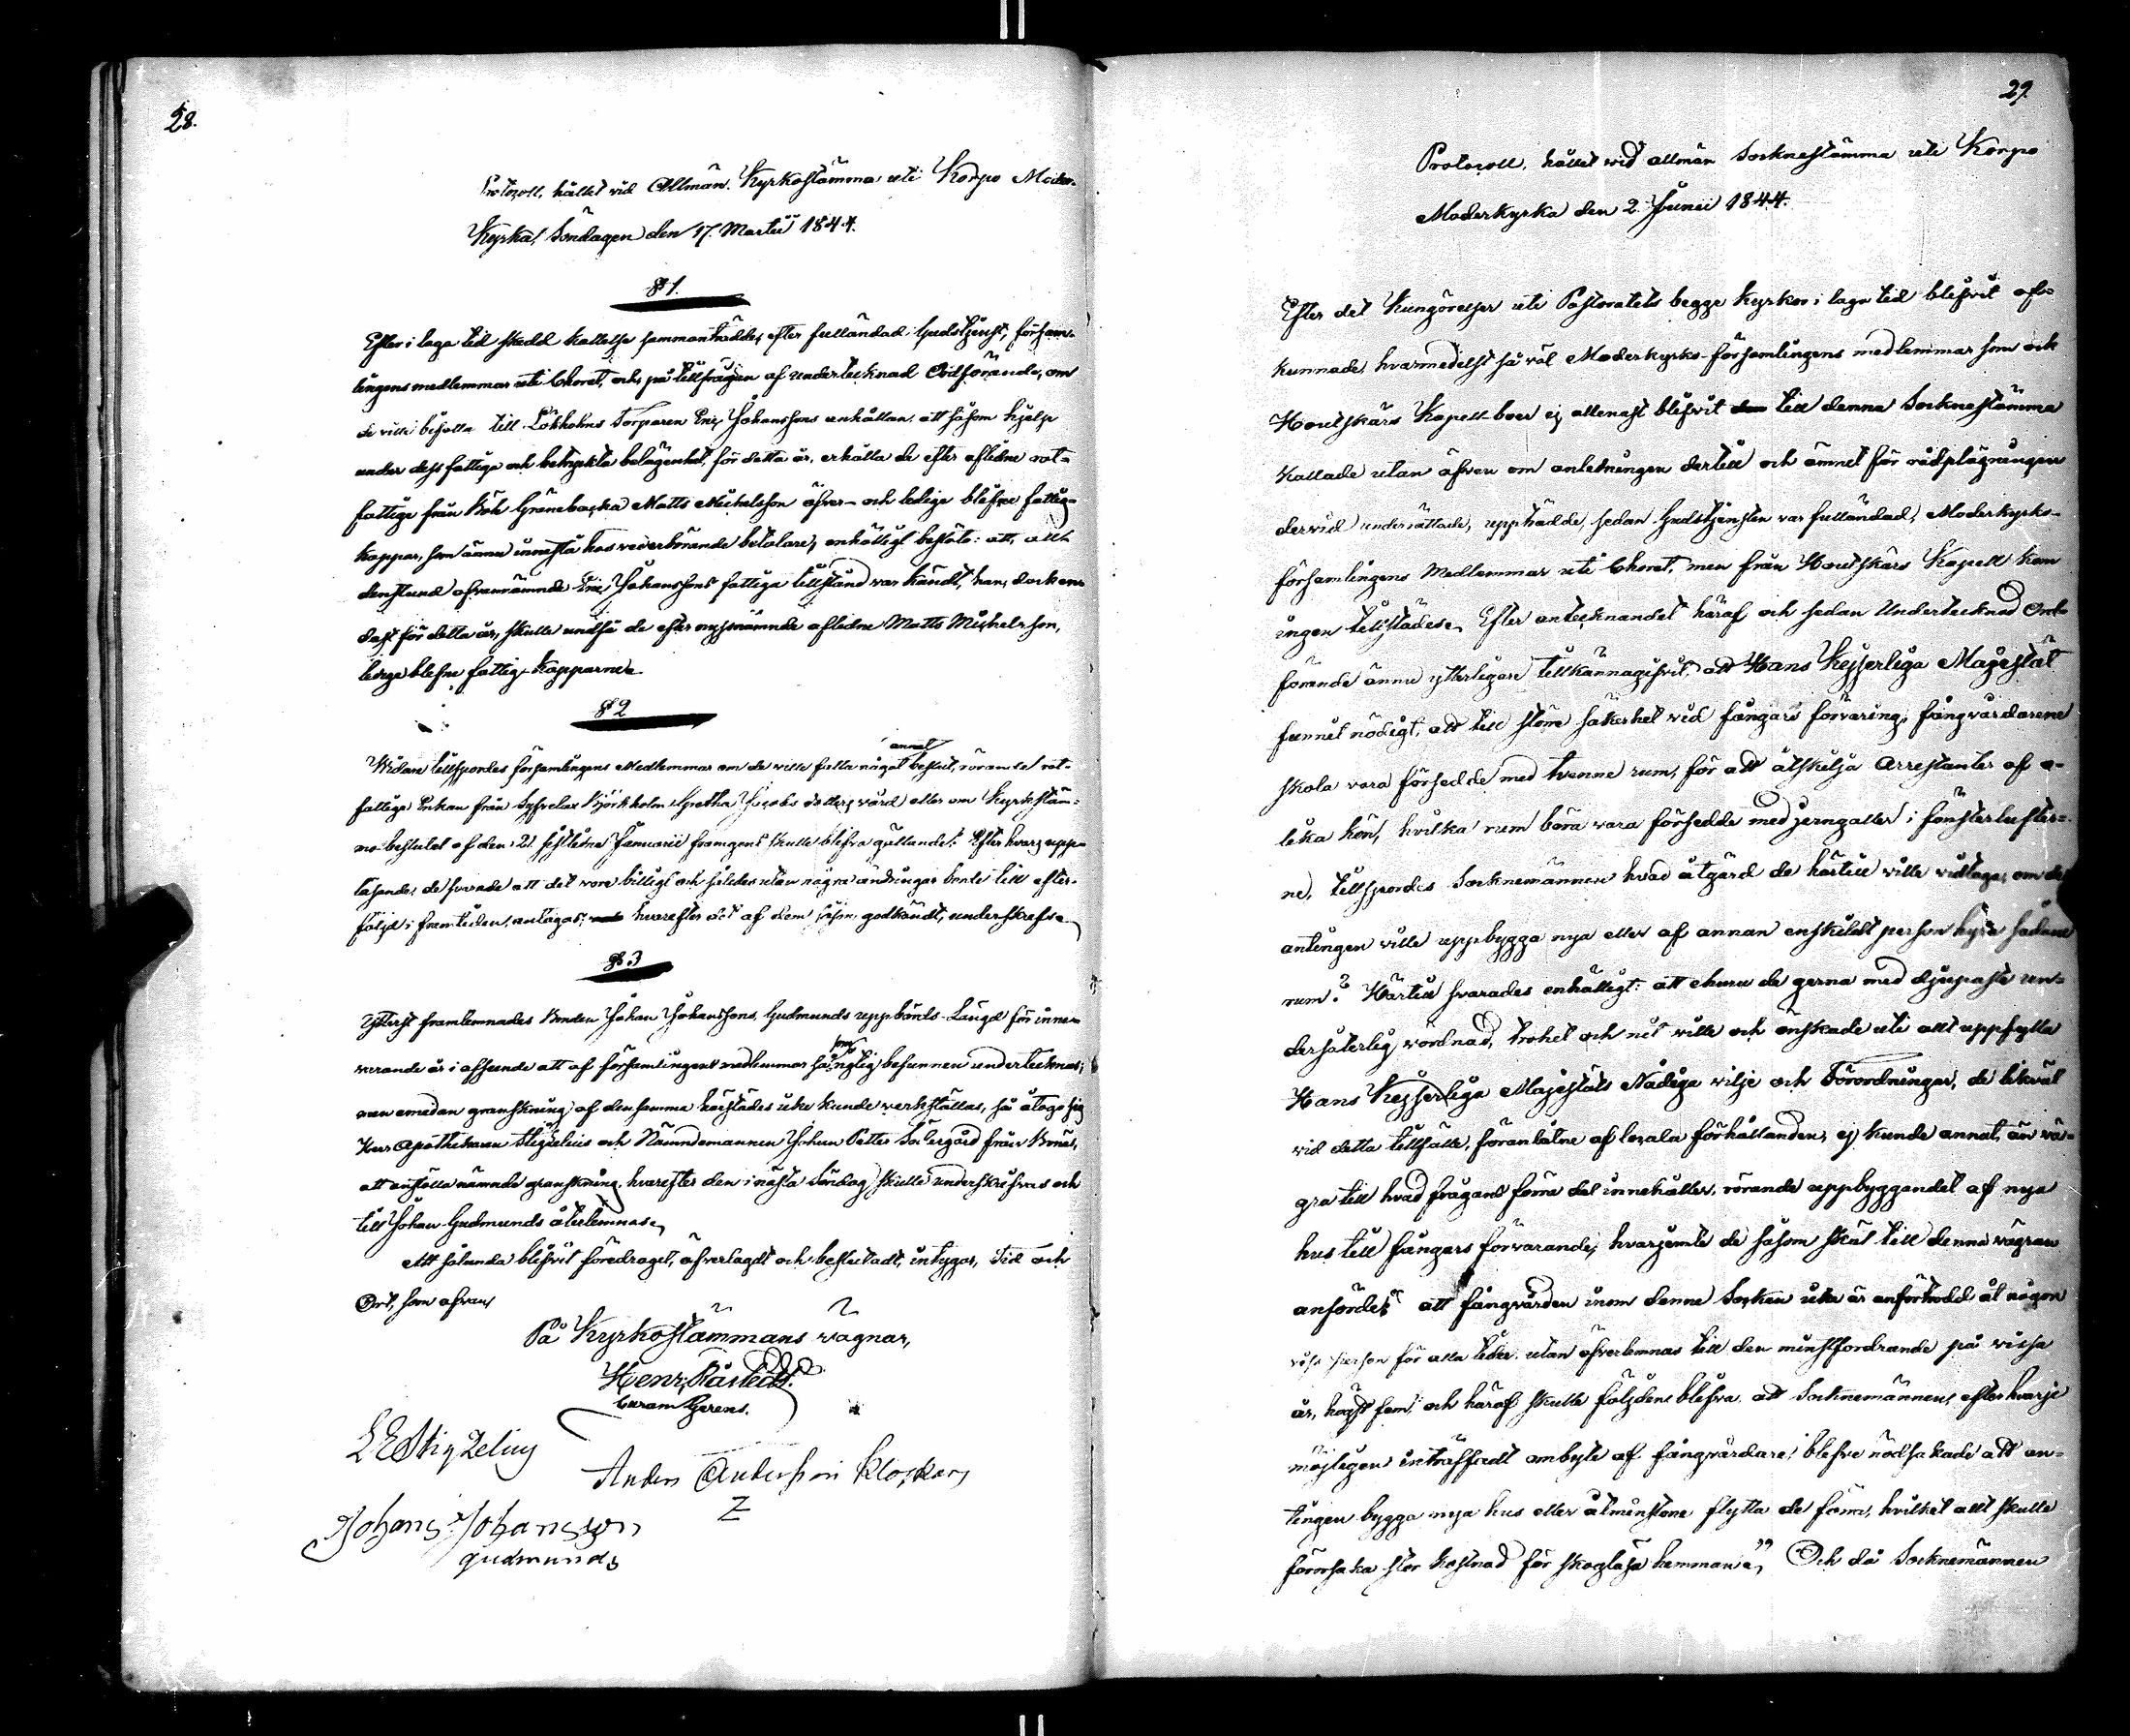 28.
Protocoll, hållet vid Allmän Kyrkostämma uti Korpo Moder-
Kyrka, Söndagen den 17. Martii 1844.
§ 1.
Efter i laga tid skedd kallelse sammanträdde, efter fulländad Gudstjenst, försam-
lingens medlemmar uti Choret, och, på tillfrågan af undertecknad Ordförande, om
de ville bifalla till Lökholms Torparen Eric Johanssons anhållan, att såsom hjelp
under dess fattiga och betryckta belägenhet, för detta år, erhålla de efter aflidne rot-
fattige från Grännebacka Matts Michelsson öfver- och ledige blefne fattig-
kappar, som ännu innestå hos vederbörande betalare, enhälligt beslöts: att, allt
denstund ofvannämnde Eric Johanssons fattiga tillstånd var kändt, han, dock en-
dast för detta år, skulle undfå de efter nyssnämnde aflidne Matts Michelsson,
ledige blefne fattig-Kapparne.
§ 2
Widare tillspordes församlingens Medlemmar om de ville fatta något annat beslut, rörande rot-
fattiga Enkan från Björkholm Gretha Jacobs dotters vård eller om Kyrkstäm-
mo beslutet af den 21. sistledne Januarii framgent skulle blifva gällande. Efter hvars upp-
läsande, de svarade att det vore billigt och således utan några ändringar borde till efter-
följd i framtiden, antagas; hvarefter det af dem, godkändt, underskrefs.
§ 3
Ytterst framlemnades Bonden Johan Johanssons, Gudmunds uppbörds-Längd för inne-
varande år i afseende att af församlingens medlemmar såsom rigtig befunnen undertecknas;
men emedan granskning af densamma härstädes icke kunde verkställas, så åtogo sig
Herr Apothekaren Stigzelius och Nämndemannen Johan Petter Södergård från
att anställa nämnde granskning, hvarefter den i nästa Söndag skulle underskrifvas och
till Johan Gudmunds återlemnas.
Att sålunda blifvit föredraget, öfverlagdt och beslutadt, intygar, Tid och
Ort, som ofvan
På Kyrkostämmans vägnar,
Henr. Råstedt.
Curam Gerens.
L E Stigzelius
Anders Andersson Kloskars
Johans Johansson
gudmunds
29.
Protocoll, hållet vid allmän Socknestämma uti Korpo
Moderkyrka den 2. Junii 1844.
Efter det Kungörelser uti Pastoratets begge Kyrkor i laga tid blifvit af-
kunnade, hvarmedelst så väl Moderkyrko-församlingens medlemmar som ock
Houtskärs Kapell-boer ej allenast blifvit till denna Socknestämma
kallade utan äfven om anledningen dertill och ämnet för rådplägningen
dervid underrättade, uppträdde, sedan Gudstjensten var fulländad, Moderkyrko-
församlingens Medlemmar uti Choret, men från Houtskärs Kapell kom
ingen tillstädes. Efter antecknandet häraf och sedan Undertecknad Ord-
förande ännu ytterligare tillkännagifvit, att Hans Kejserliga Majestät
funnit nödigt, att till större säkerhet vid fångars förvaring, fångvårdarene
skola vara försedde med tvenne rum, för att åtskilja Arrestanter af o-
lika kön, hvilka rum böra vara försedde med jerngaller i fönsterlufter-
ne, tillspordes Socknemännen hvad åtgärd de härtill ville vidtaga, om de
antingen ville uppbygga nya eller af annan enskildt person hyra sådane
rum? Härtill svarades enhälligt: att ehuru de gerna med djupaste un-
dersåterlig vördnad, trohet och nit ville och önskade uti allt uppfylla
Hans Kejserliga Majestäts Nådiga vilje och Förordningar, de likväl
vid detta tillfälle, föranlåtne af lozala förhållanden, ej kunde annat, än vä-
gra till hvad frågans förra del innehåller, rörande uppbyggandet af nya
hus till fångars förvarande, hvarjemte de såsom skäl till denna vägran
anförde: "att fångvården inom denne Socken icke är anförtrodd åt någon
viss Person för alla tider, utan öfverlemnas till den minstfordrande på vissa
år, högst fem, och häraf skulle följden blifva, att Socknemännen, efter hvarje
möjligen inträffadt ombyte af fångvårdare, blefve nödsakade att an-
tingen bygga nya hus eller åtminstone flytta de förra, hvilket allt skulle
förorsaka stor kostnad för skoglösa hemman". Och då Socknemännen